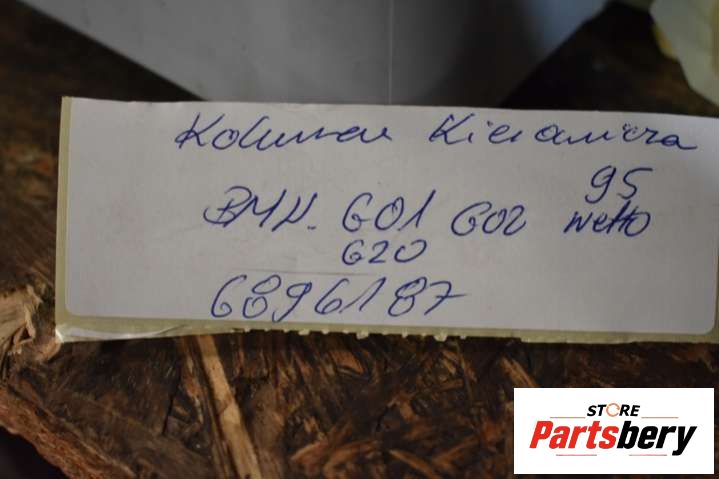 Kolumna Kierownicza
95
BMW. G01 G02 netto
G20
6896187
STORE
Partsbery